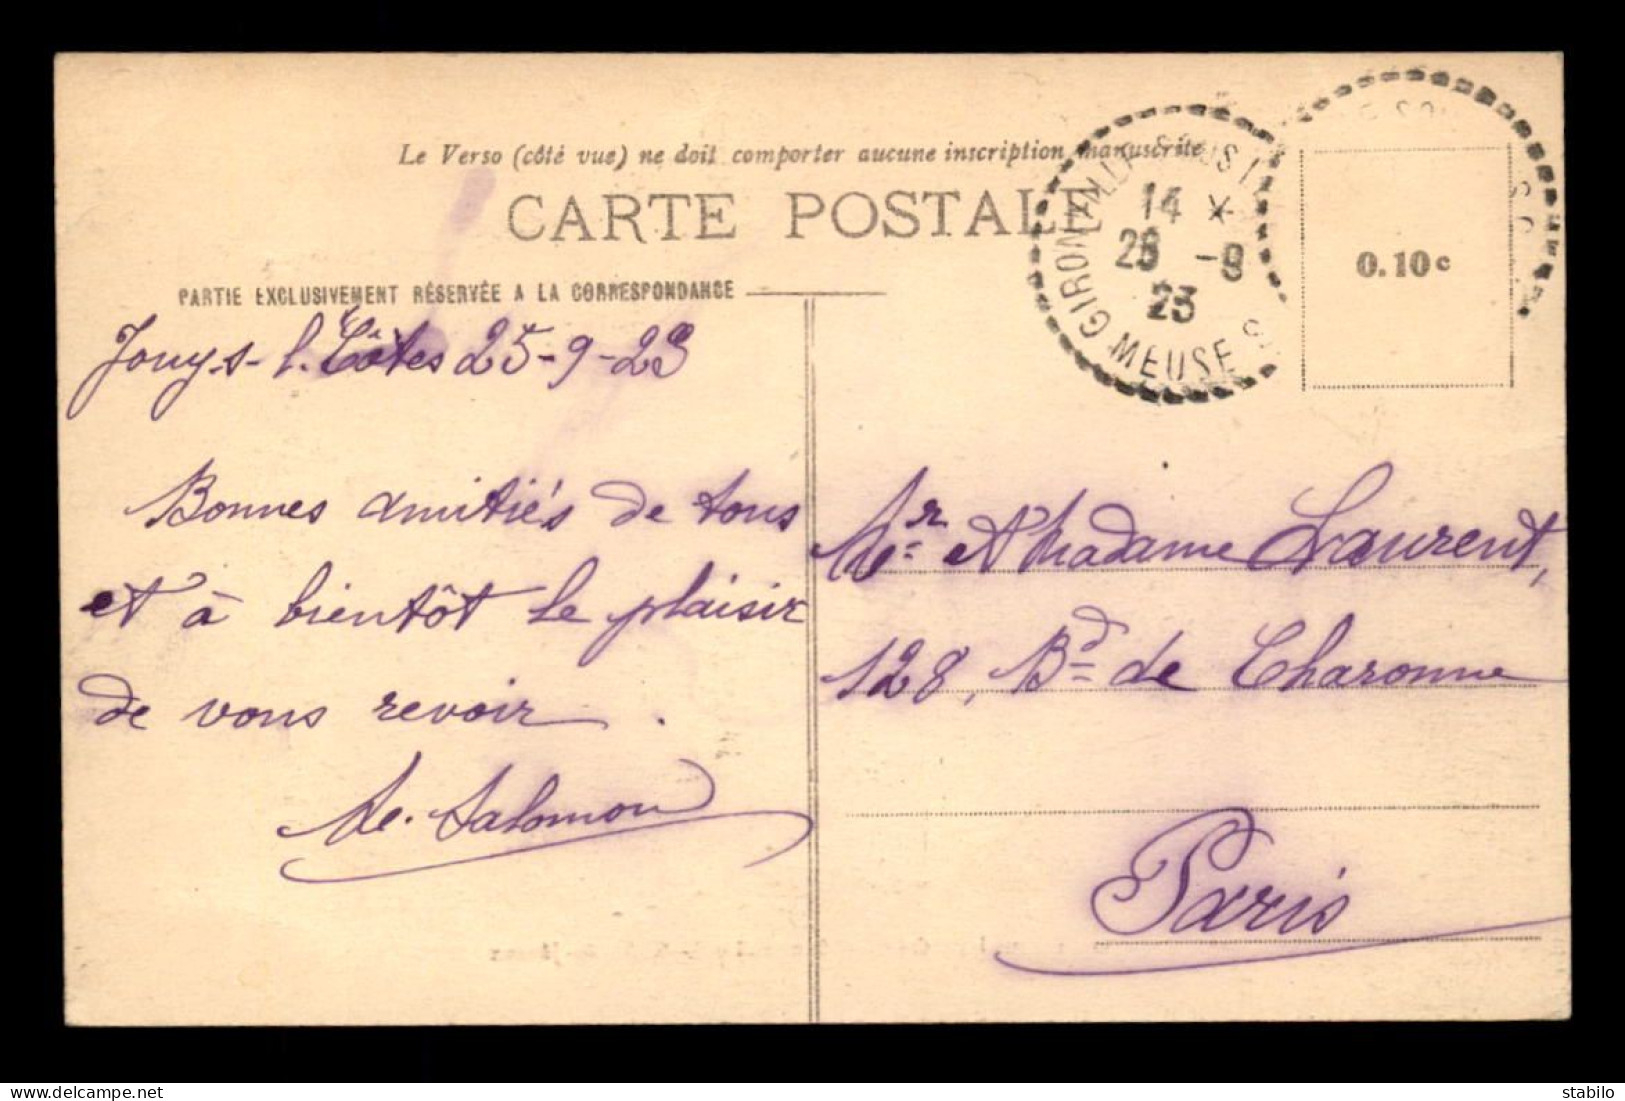 Le Verso (côté vue) ne doit comporter aucune inscription manuscrite
CARTE POSTALE
PARTIE EXCLUSIVEMENT RÉSERVÉE A LA CORRESPONDANCE
GIRONVILLE-SOUS-
14 *
-9
23
MEUSE
0.10c
Jouy-s-l. Côtes 25-9-23
Bonnes amitiés de tous
et à bientôt le plaisir
de vous revoir.
Salomon
Mr et Madame Laurent,
128, Bd de Charonne
Paris
delcampe.net
stabilo